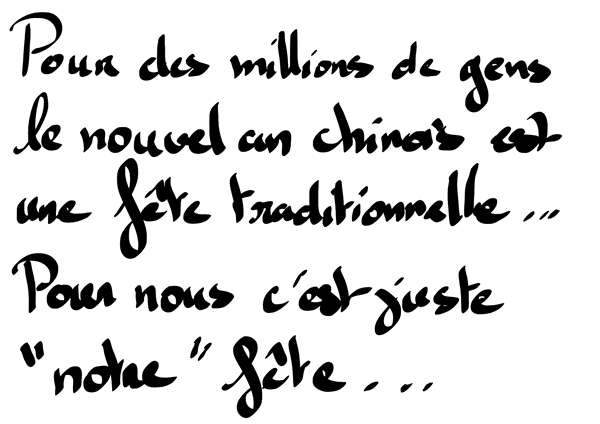 Pour des millions de gens
le nouvel an chinois est
une fête traditionnelle...
Pour nous c'est juste
"notre" fête...